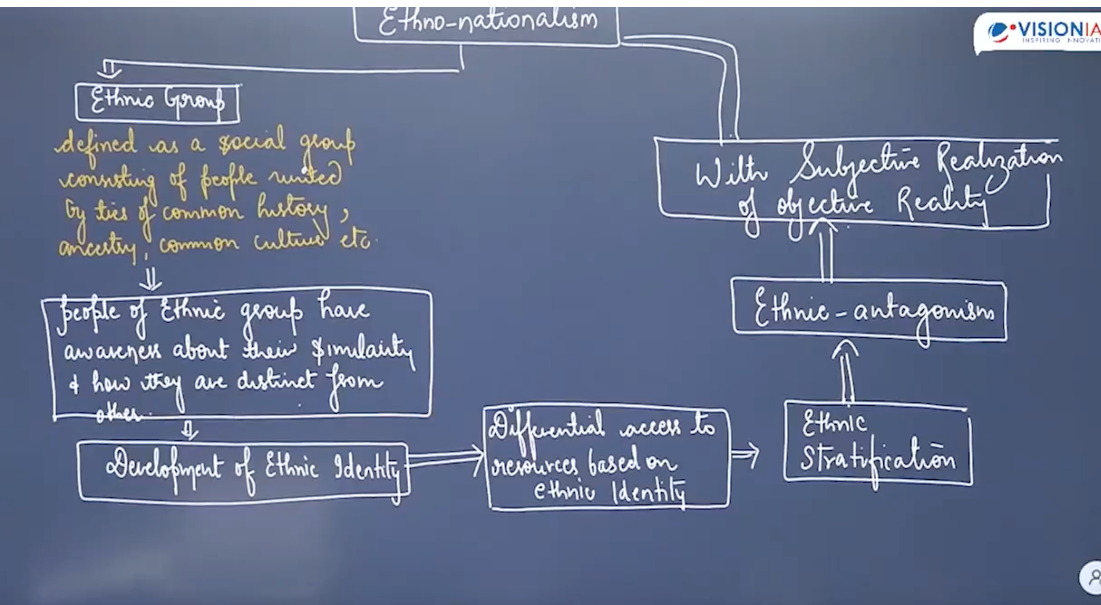 Ethno-nationalism
VISIONIA
INSPIRING INNOVATI
Ethnic Group
defined as a social group
consisting of people united
by ties of common history,
ancestry, common culture etc.
people of Ethnic group have
awareness about their similarity
& how they are distinct from
other.
Development of Ethnic Identity
Differential access to
resources based on
ethnic Identity
Ethnic
Stratification
Ethnic-antagonism
With Subjective Realization
of objective Reality